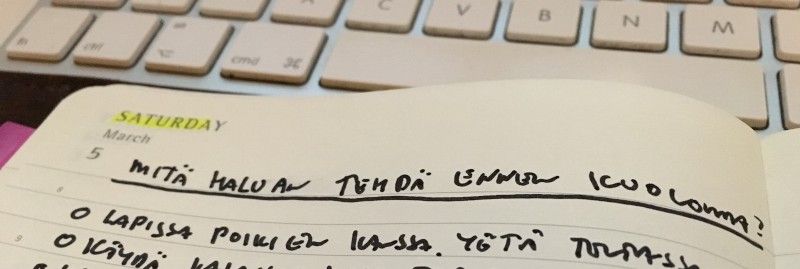 C V B N M
fn ctrl ⌥ cmd ⌘
SATURDAY
March
5 MITÄ HALUAN TEHDÄ ENNEN KUOLEMAA?
8
O LAPISSA POIKIEN KANSSA. YÖTÄ
9 O KÄYDÄ